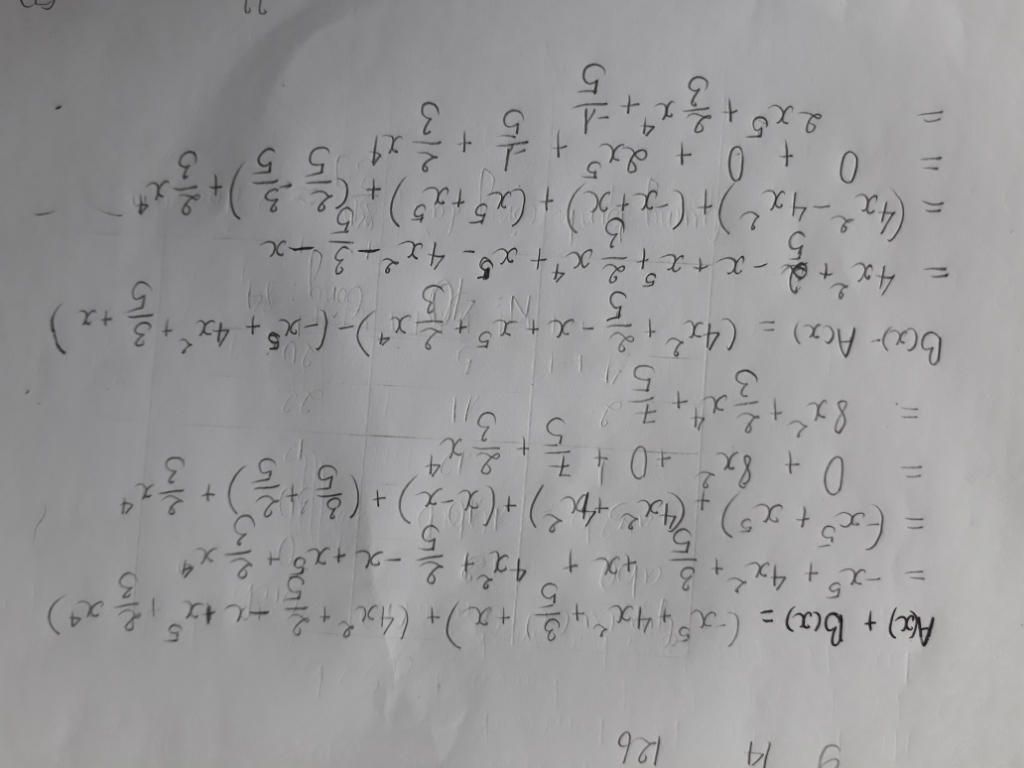 9 14 126
A(x) + B(x) = (-x⁵ + 4x² + 3/5 + x) + (4x² + 2/5 - x + x⁵ + 2/3 x⁴)
= -x⁵ + 4x² + 3/5 + 4x + 4x² + 2/5 - x + x⁵ + 2/3 x⁴
= (-x⁵ + x⁵) + (4x² + 4x²) + (x - x) + (3/5 + 2/5) + 2/3 x⁴
= 0 + 8x² + 0 + 7/5 + 2/3 x⁴
= 8x² + 2/3 x⁴ + 7/5
B(x) - A(x) = (4x² + 2/5 - x + x⁵ + 2/3 x⁴) - (-x⁵ + 4x² + 3/5 + x)
= 4x² + 2/5 - x + x⁵ + 2/3 x⁴ + x⁵ - 4x² - 3/5 - x
= (4x² - 4x²) + (-x + x) + (x⁵ + x⁵) + (2/5 - 3/5) + 2/3 x⁴
= 0 + 0 + 2x⁵ + -1/5 + 2/3 x⁴
= 2x⁵ + 2/3 x⁴ + -1/5